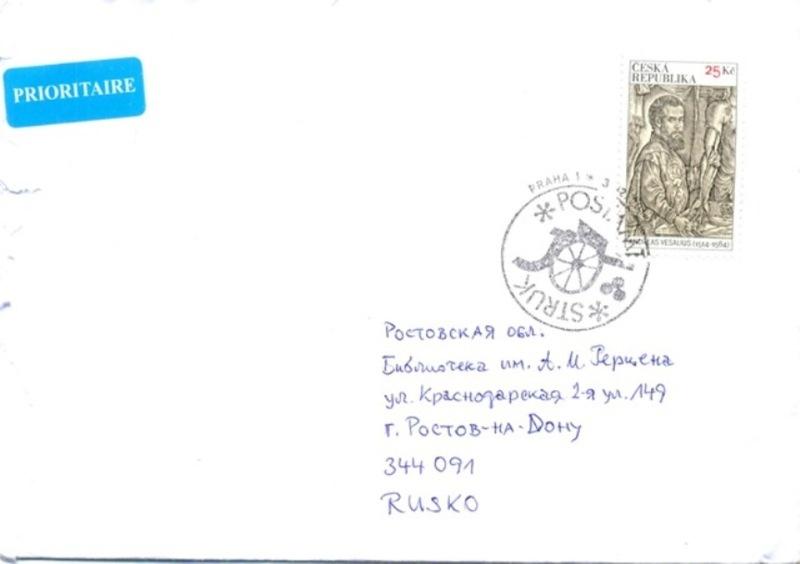 PRIORITAIRE
ČESKÁ
REPUBLIKA
25 Kč
ANDREAS VESALIUS (1514-1564)
PRAHA 1
3
STRUK
Ростовская обл.
Библиотека им. А.И. Герцена
ул. Краснодарская 2-я ул. 149
г. Ростов-на-Дону
344 091
RUSKO